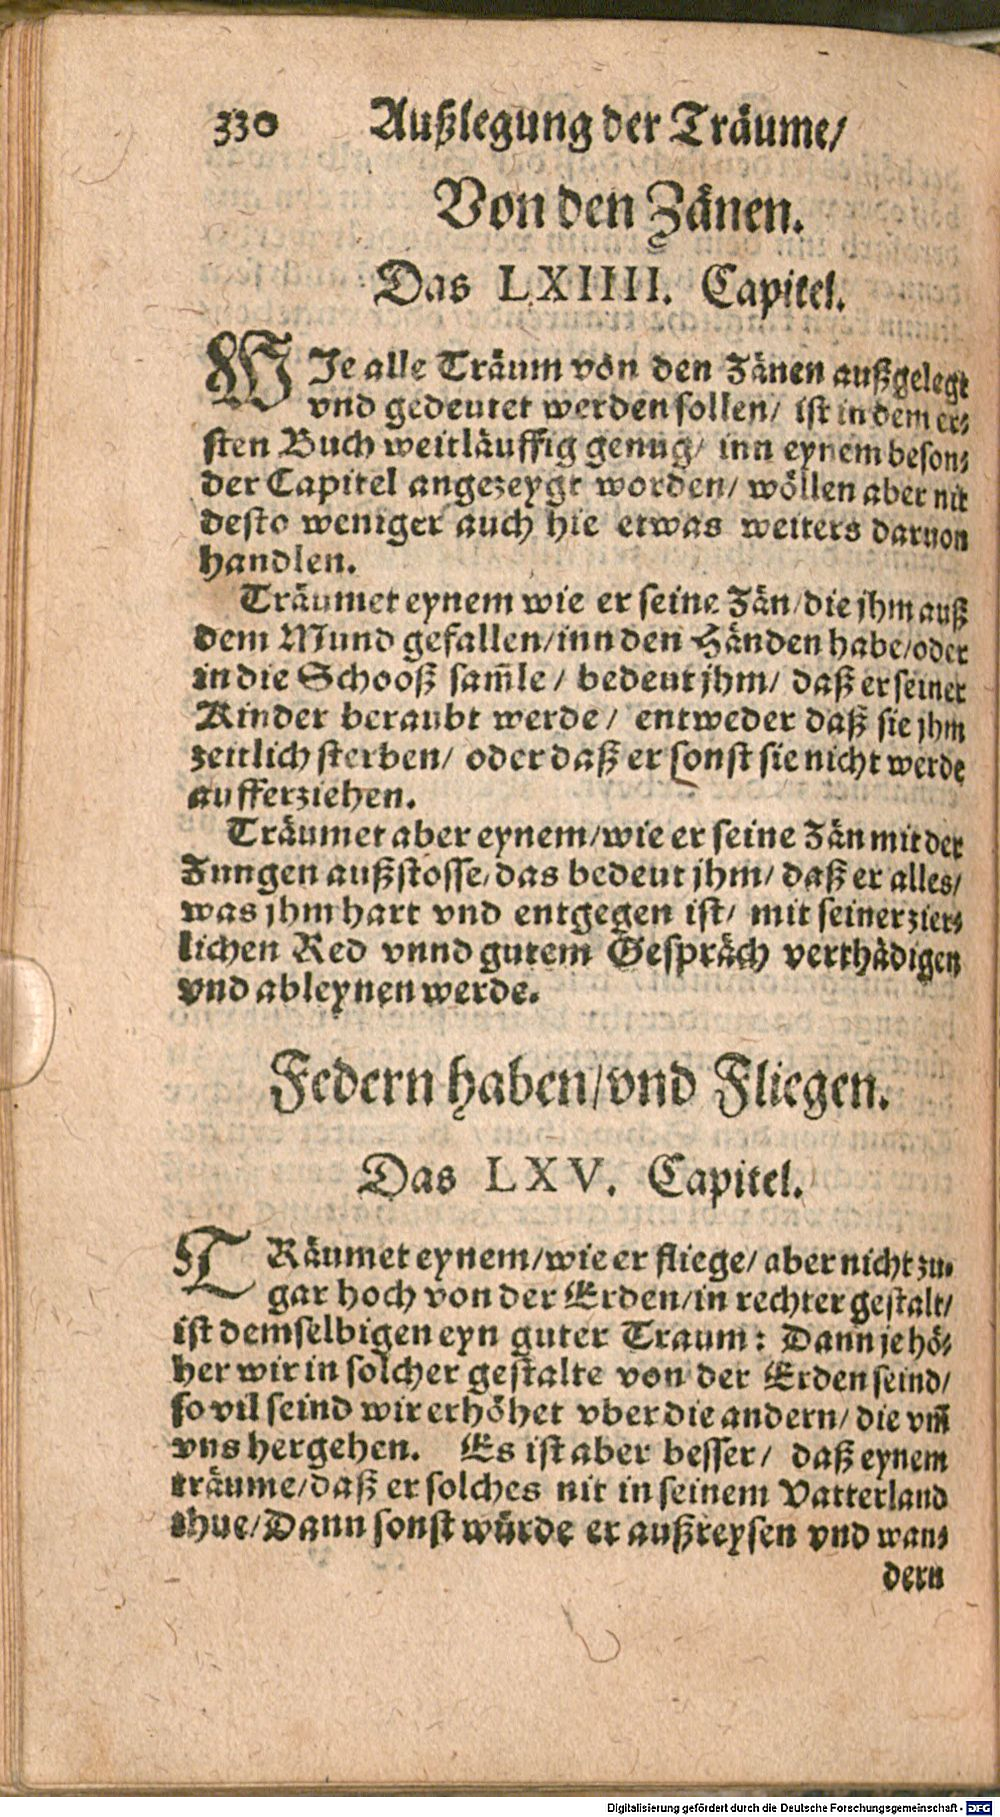 330 Außlegung der Träume/
Von den Zänen.
Das LXIIII. Capitel.
WIe alle Träum von den Zänen außgelegt
vnd gedeutet werden sollen/ ist in dem er⸗
sten Buch weitläuffig genug/ inn eynem beson⸗
der Capitel angezeygt worden/ wöllen aber nit
desto weniger auch hie etwas weiters daruon
handlen.
Träumet eynem wie er seine Zän/die jhm auß
dem Mund gefallen/inn den Händen habe/oder
in die Schooß sam̃le/ bedeut jhm/ daß er seiner
Kinder beraubt werde/ entweder daß sie jhm
zeitlich sterben/ oder daß er sonst sie nicht werde
aufferziehen.
Träumet aber eynem/wie er seine Zän mit der
Zungen außstosse/das bedeut jhm/ daß er alles/
was jhm hart vnd entgegen ist/ mit seiner zier⸗
lichen Red vnnd gutem Gespräch verthädigen
vnd ableynen werde.
Federn haben/vnd Fliegen.
Das LXV. Capitel.
TRäumet eynem/wie er fliege/ aber nicht zu⸗
gar hoch von der Erden/in rechter gestalt/
ist demselbigen eyn guter Traum: Dann je hö⸗
her wir in solcher gestalte von der Erden seind/
so vil seind wir erhöhet vber die andern/ die vm̃
vns hergehen. Es ist aber besser/ daß eynem
träume/daß er solches nit in seinem Vatterland
thue/Dann sonst würde er außreysen vnd wan⸗
dern
Digitalisierung gefördert durch die Deutsche Forschungsgemeinschaft - DFG